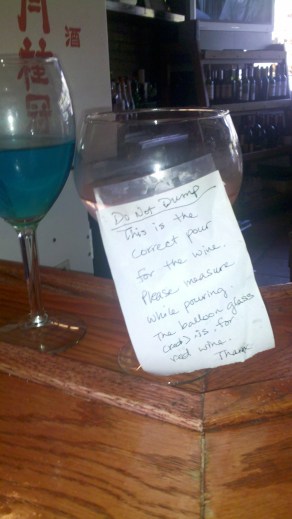 月桂冠
酒
Do Not Dump
This is the
correct pour
for the wine.
Please measure
while pouring
The balloon glass
is for
red wine.
Thanx